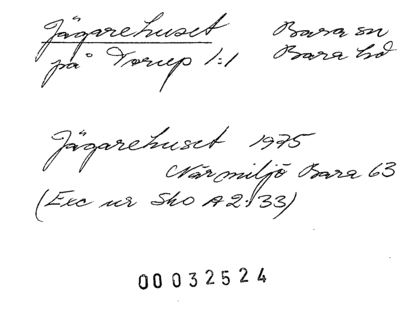 Jägarehuset Bara sn
på Torup 1:1 Bara hd
Jägarehuset 1975
Närmiljö Bara 63
(Exc ur Sko A 2:33)
00032524